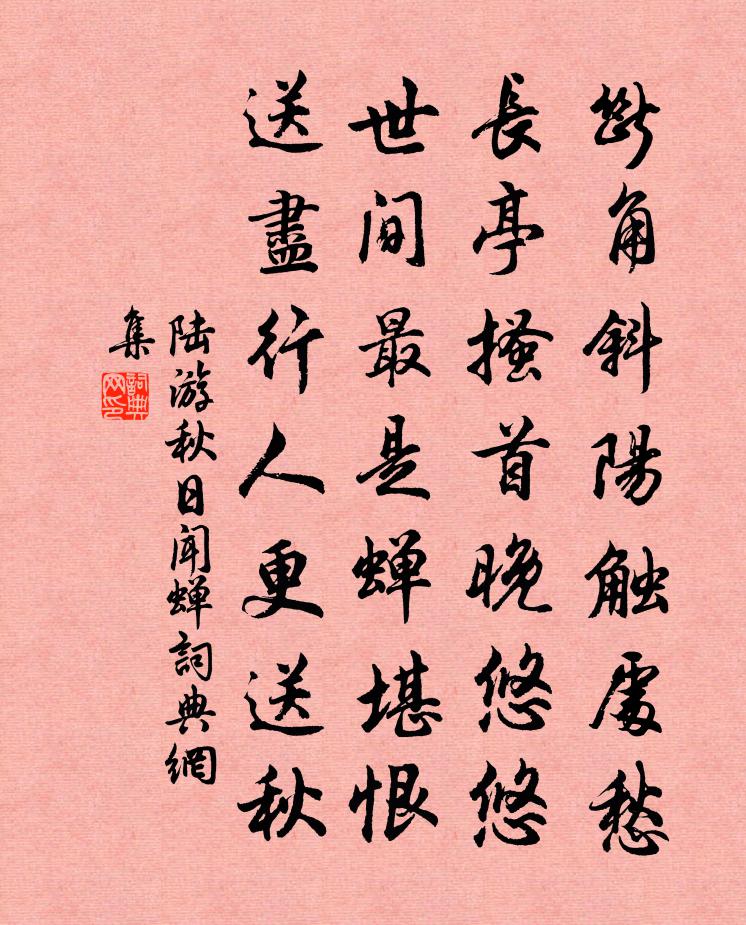 断角斜陽触處愁
長亭搔首晚悠悠
世间最是蝉堪恨
送盡行人更送秋
陆游秋日闻蝉詞典網
集
詞典
网印